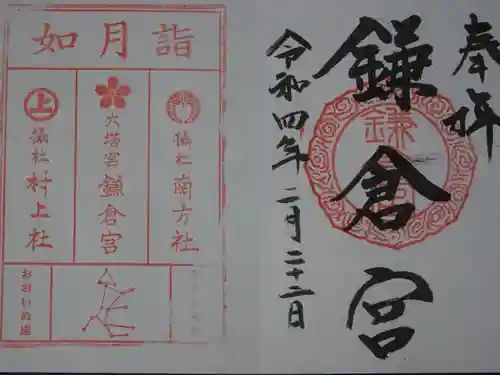 奉拝
鎌倉宮
令和四年二月二十二日
鎌
如月詣
摂社 南方社
大塔宮 鎌倉宮
上
摂社 村上社
おおいぬ座